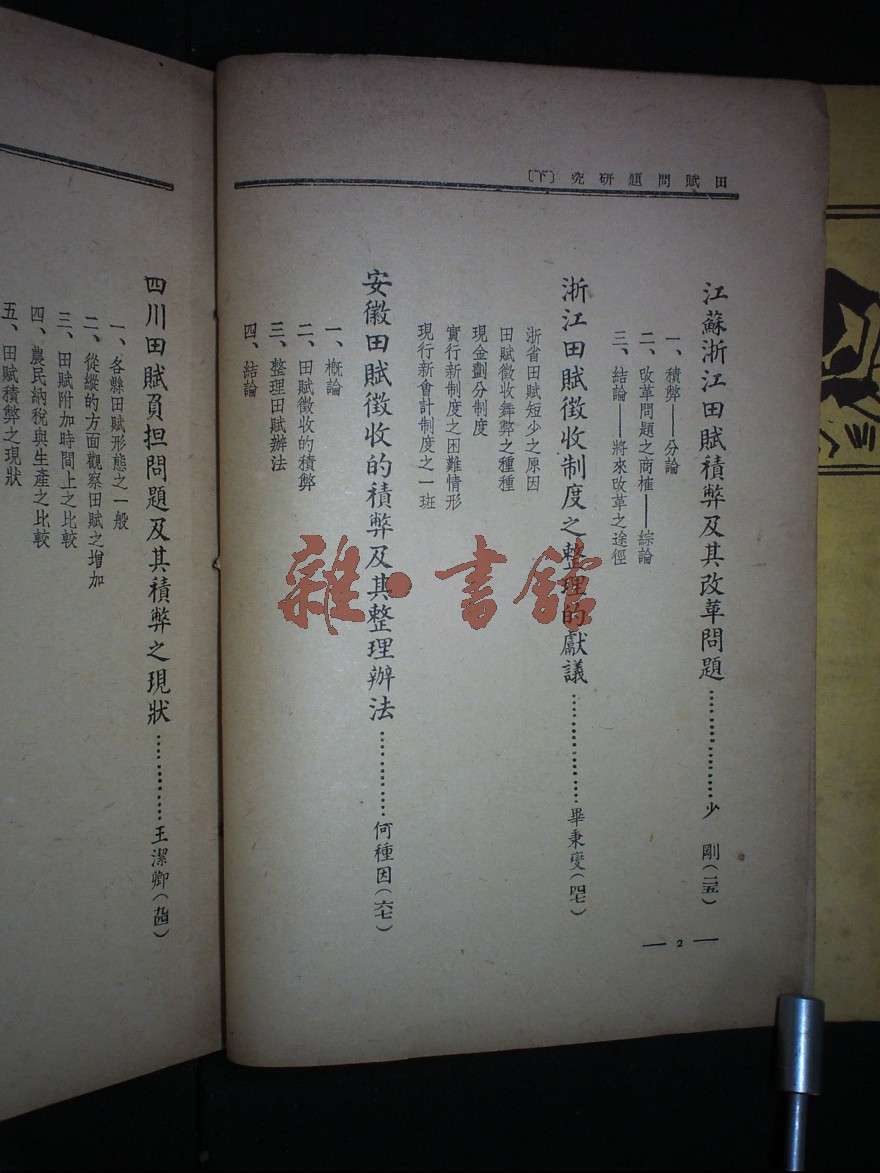 田賦問題研究〔下〕
江蘇浙江田賦積弊及其改革問題………………少　剛(二五)
一、積弊——分論
二、改革問題之商榷——綜論
三、結論——將來改革之途徑
浙江田賦徵收制度之整理的獻議………………畢秉燮(四七)
浙省田賦短少之原因
田賦徵收舞弊之種種
現金劃分制度
實行新制度之困難情形
現行新會計制度之一班
安徽田賦徵收的積弊及其整理辦法……………何種因(六七)
一、概論
二、田賦徵收的積弊
三、整理田賦辦法
四、結論
— 2 —
四川田賦負担問題及其積弊之現狀……………王潔卿
一、各縣田賦形態之一般
二、從縱的方面觀察田賦之增加
三、田賦附加時間上之比較
四、農民納稅與生產之比較
五、田賦積弊之現狀
雜·書館